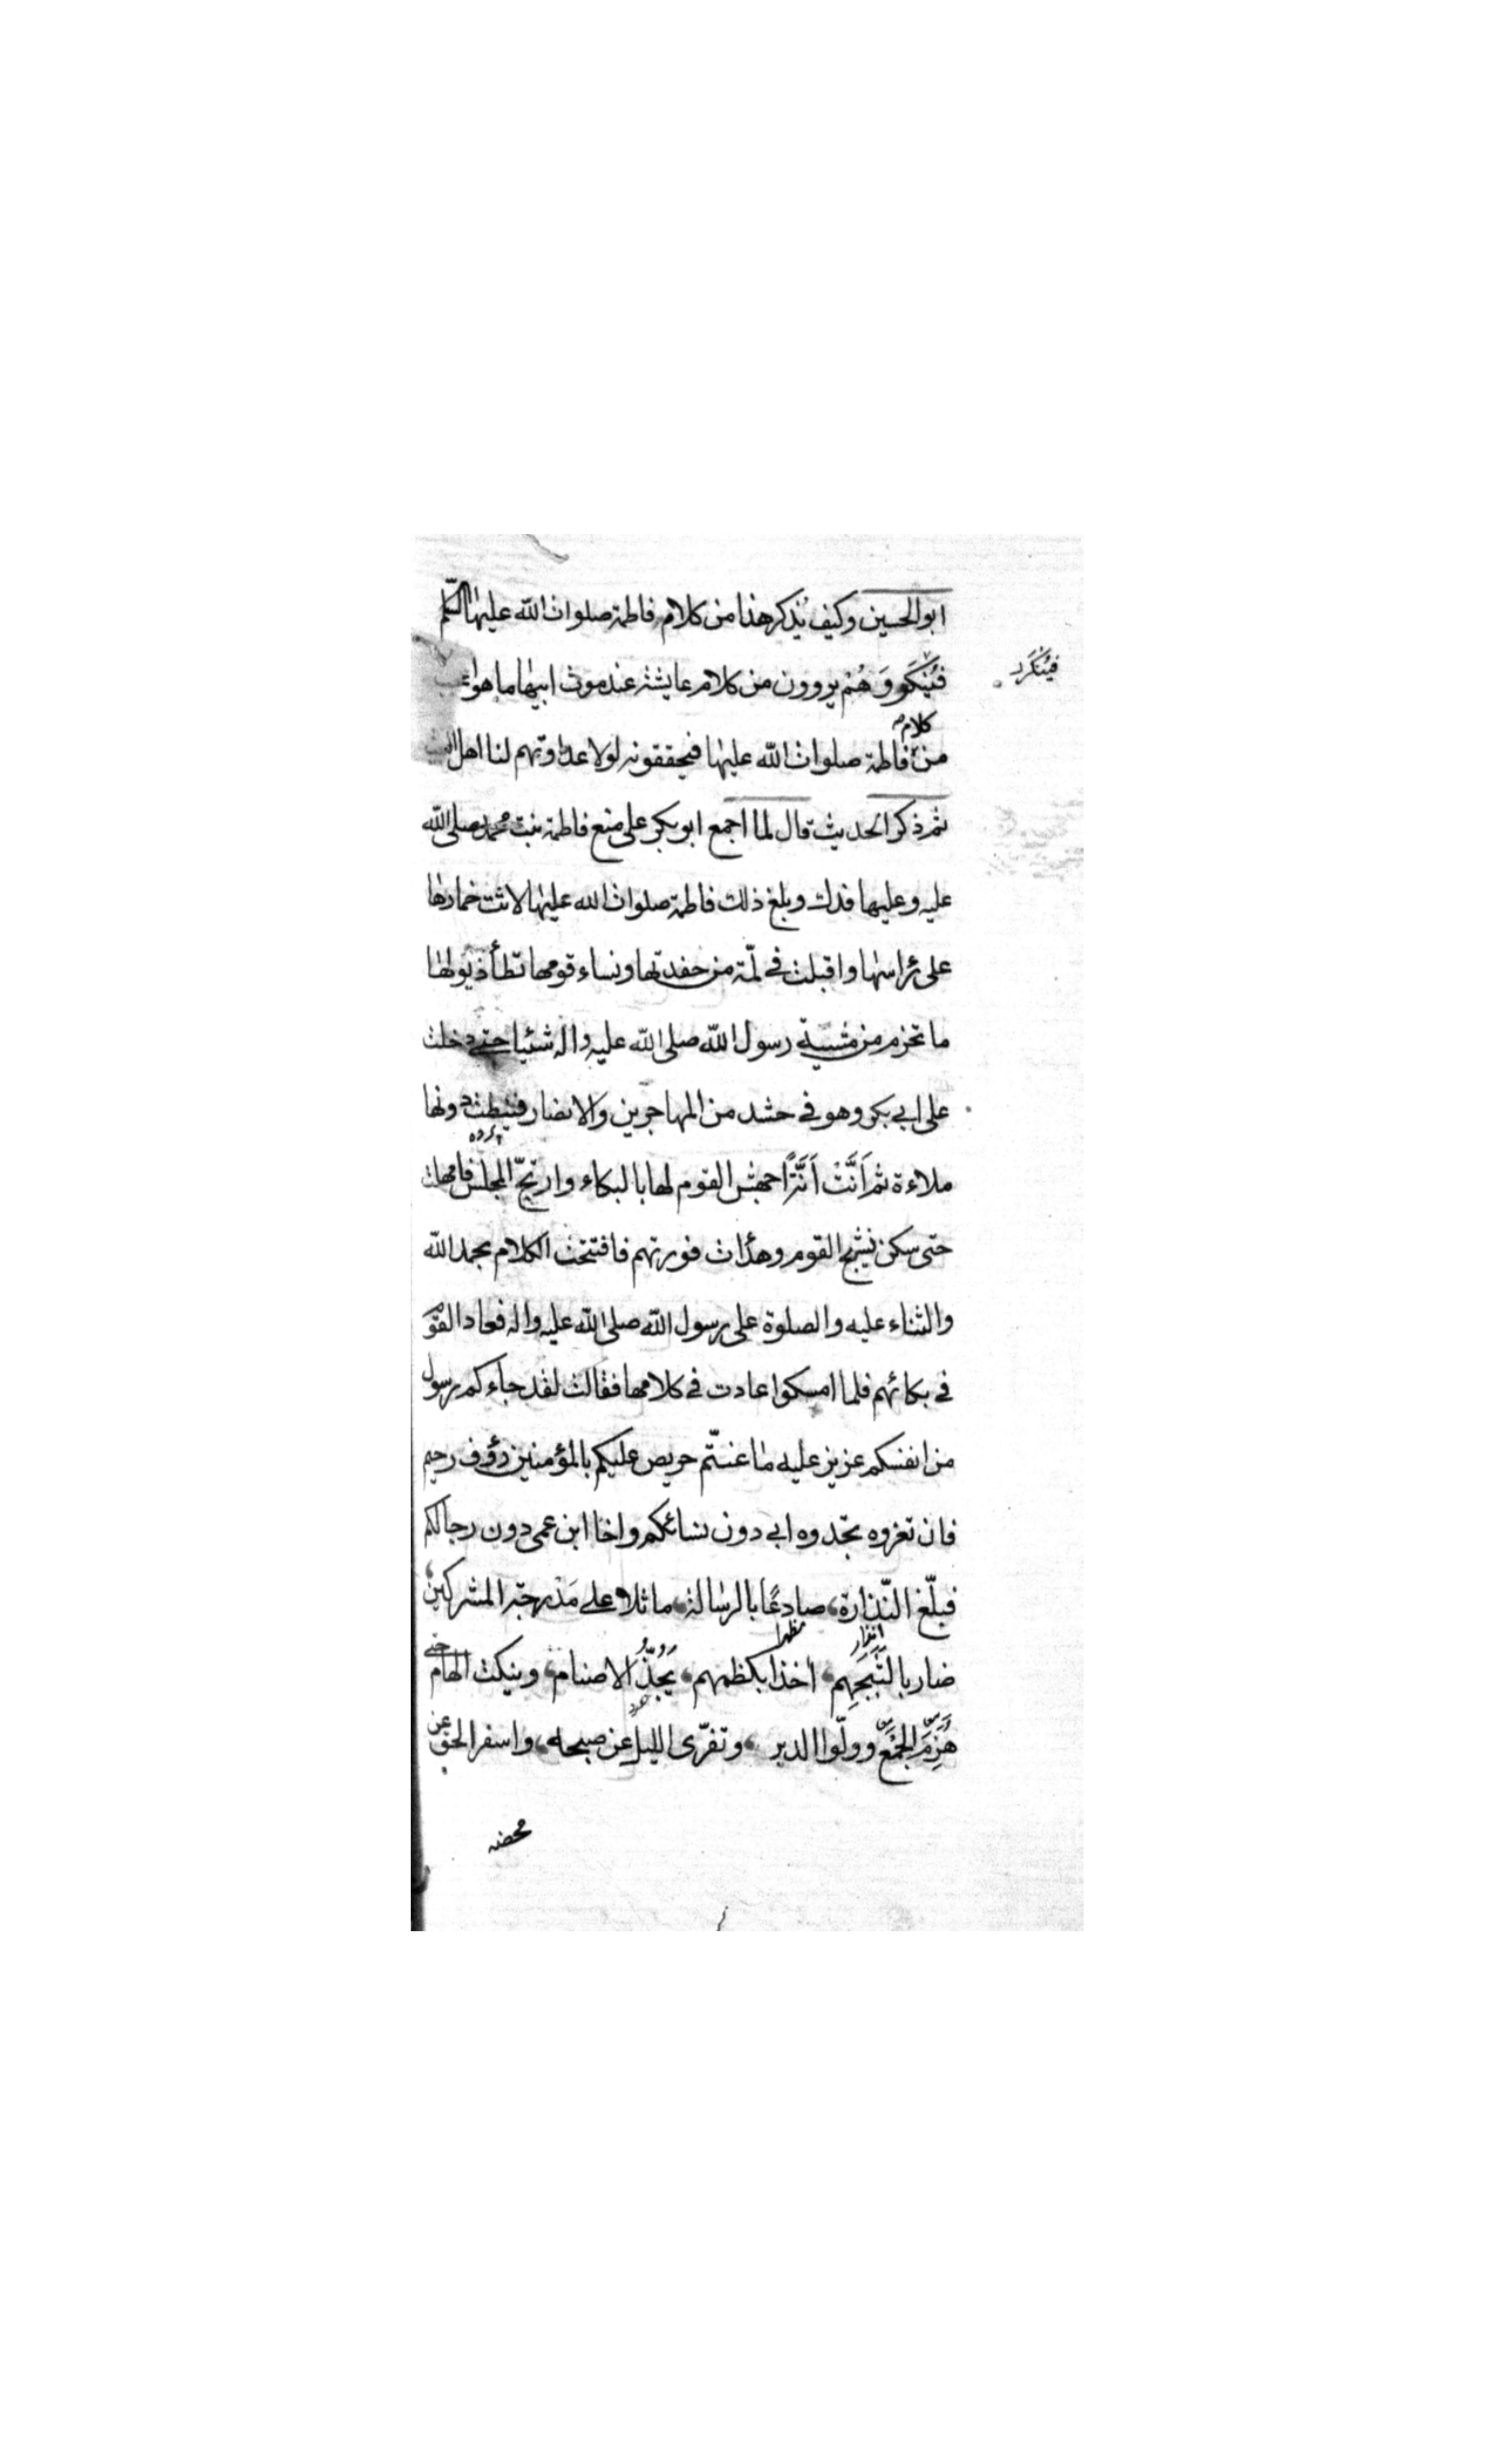 ابو الحسين وكيف يُذكر هذا من كلام فاطمة صلوات الله عليها
فيُنكَر
فيُنكَرو وَهُم يروون من كلام عايشة عند موت ابيها ما هو اعجب
كلام
من فاطمة صلوات الله عليها فيحققونه لولا عداوتهم لنا اهل البيت
ثم ذكر الحديث قال لما اجمع ابو بكر على منع فاطمة بنت محمد صلى الله
عليه وعليها فدك وبلغ ذلك فاطمة صلوات الله عليها لاثت خمارها
على راسها واقبلت في لمّة من حفدتها ونساء قومها تطأ ذيولها
ما تخرم من مشية رسول الله صلى الله عليه واله شيئا حتى دخلت
على ابي بكر وهو في حشد من المهاجرين والانصار فنيطت دونها
پرده
ملاءة ثم اَنَّتْ اَنَّةً اجهش القوم لها بالبكاء وارتجّ المجلس فامهلت
حتى سكن نشيج القوم وهدأت فورتهم فافتتحت الكلام بحمد الله
والثناء عليه والصلوة على رسول الله صلى الله عليه واله فعاد القوم
في بكائهم فلما امسكوا عادت في كلامها فقالت لقد جاءكم رسول
من انفسكم عزيز عليه ما عنتّم حريص عليكم بالمؤمنين رؤف رحيم
فان تعزوه تجدوه ابي دون نسائكم واخا ابن عمي دون رجالكم
فبلّغ النّذارة، صادعًا بالرسالة، ماثلا على مَدْرجة المشركين،
انذار مظهرا
ضاربا لثَبَجَهِم، اخذا بكظمهم، يَجُذُّ الاصنام، وينكث الهام حتى
هُزِمَ الجَمْعُ وولّوا الدبر، وتفرّى الليل عن صبحه، واسفر الحق عن
محضه